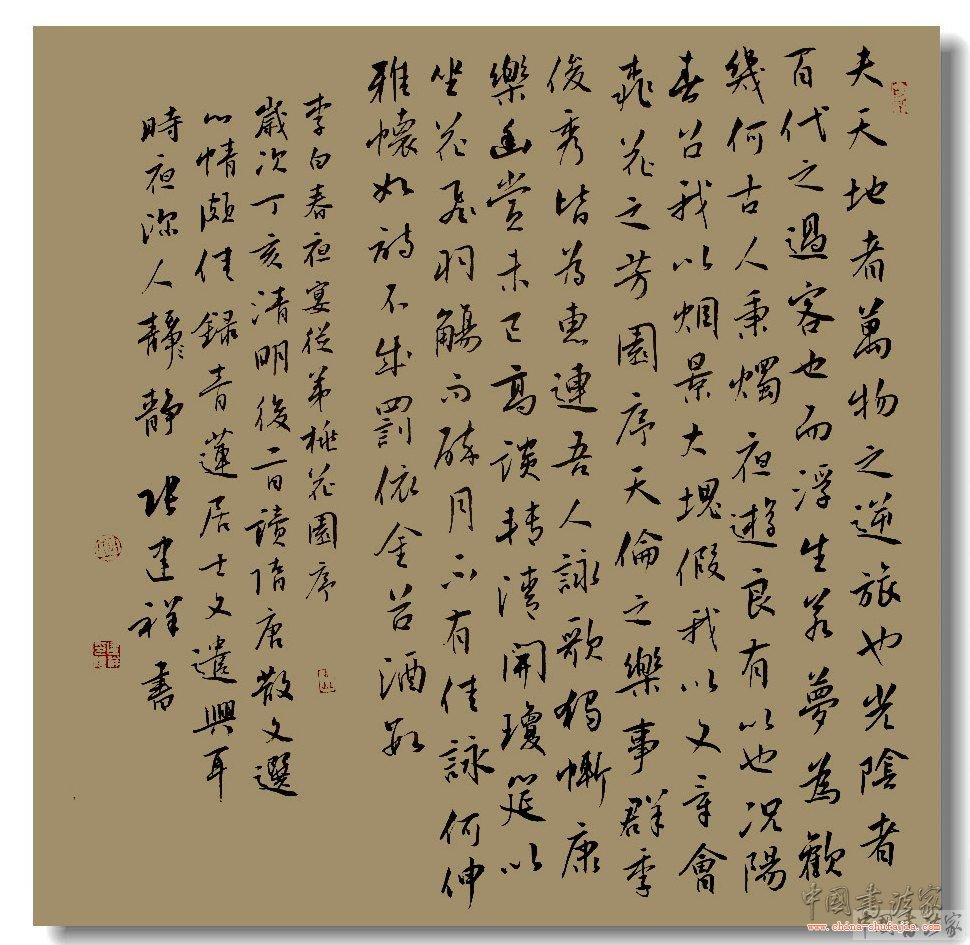 夫天地者萬物之逆旅也光陰者
百代之過客也而浮生若夢為歡
幾何古人秉燭夜遊良有以也况陽
春召我以烟景大塊假我以文章會
桃花之芳園序天倫之樂事群季
俊秀皆為惠連吾人詠歌獨慚康
樂幽賞未已高談轉清開瓊筵以
坐花飛羽觴而醉月不有佳詠何伸
雅懷如詩不成罰依金谷酒數
李白春夜宴從弟桃花園序
歲次丁亥清明後二日讀隋唐散文選
心情頗佳錄青蓮居士文遣興耳
時夜深人靜靜 张建祥書
中國書法家
www.china-shufajia.com